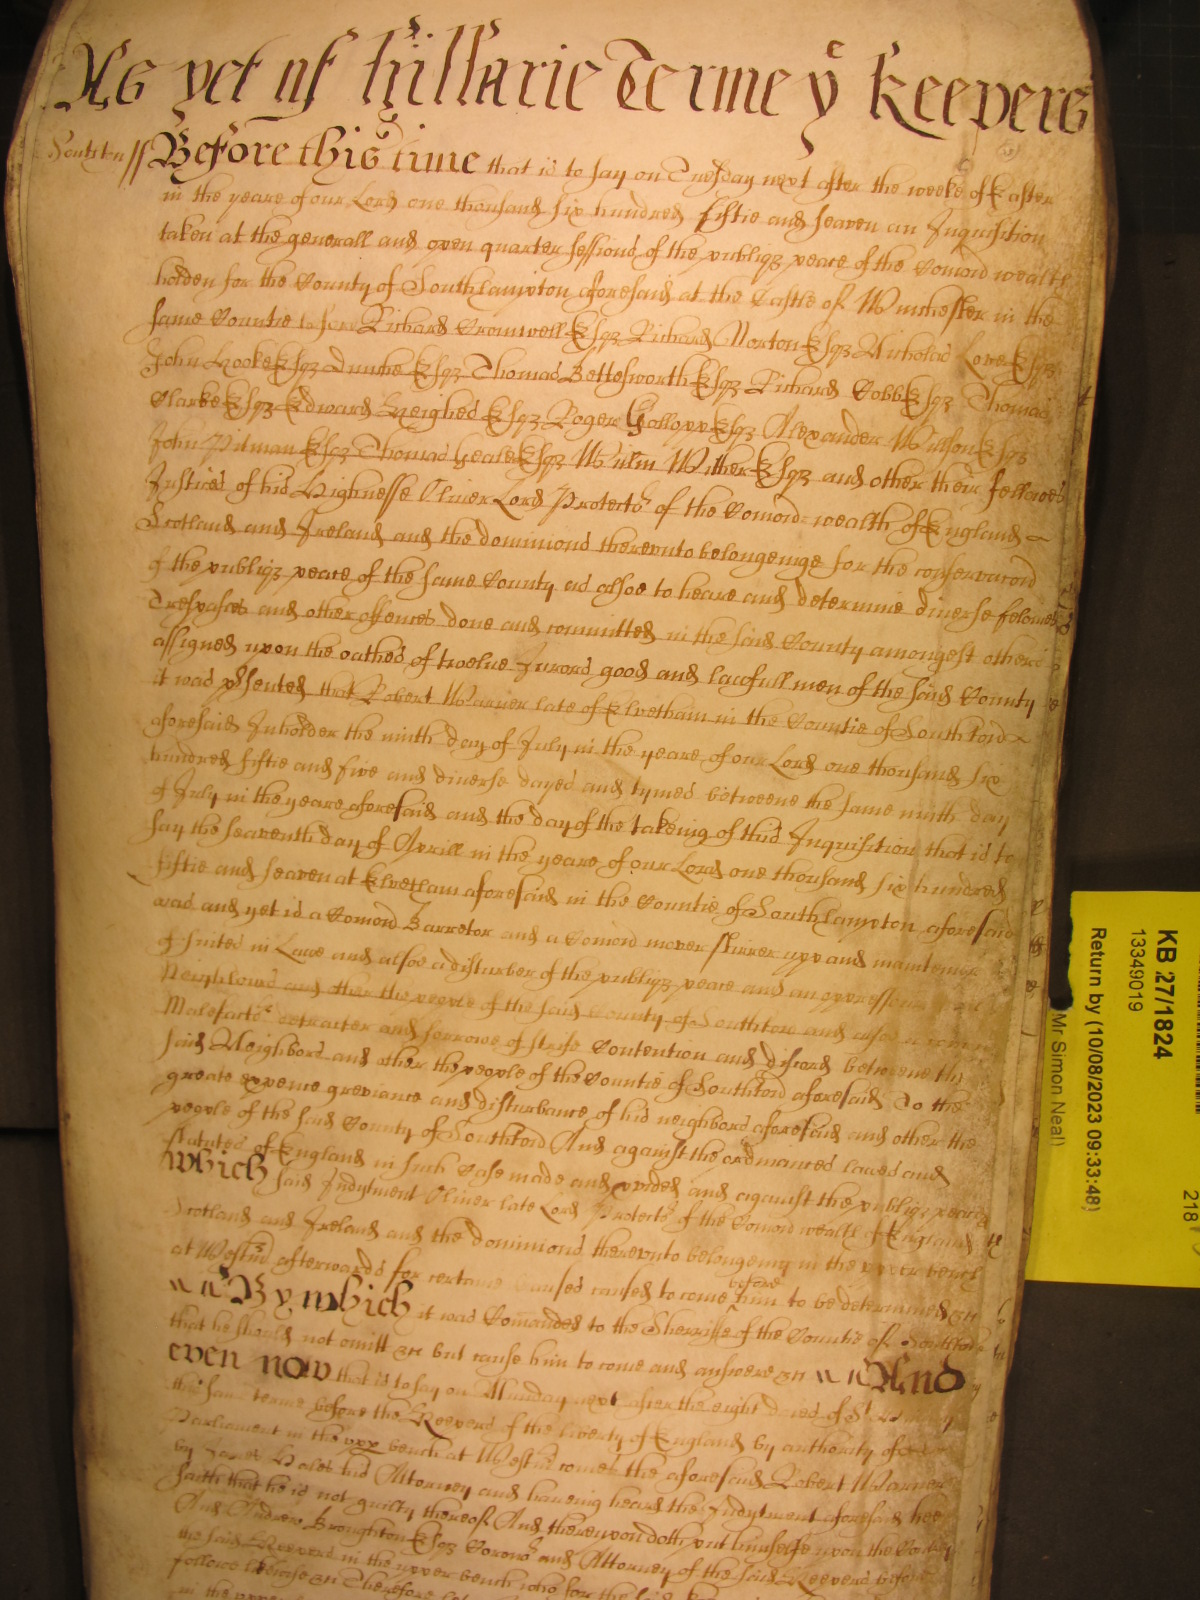 As yet of Hillarie Terme ye Keepers
Southtn ss Before this time that is to say on Tuesday next after the weeke of Easter
in the yeare of our Lord one thousand six hundred fiftie and seaven an Inquisition
taken at the generall and open quarter sessions of the publiqz peace of the Comon wealth
holden for the County of Southampton aforesaid at the Castle of Winchester in the
same Countie before Richard Cromwell Esqz Richard Norton Esqz Nicholas Love Esqz
John Hooke Esqz Dunche Esqz Thomas Bettesworth Esqz Richard Cobb Esqz Thomas
Clarke Esqz Edward Heighes Esqz Roger Gallopp Esqz Alexander Willson Esqz
John Pitman Esqz Thomas Heale Esqz Willm Wither Esqz and other their fellowes
Justices of his Highnesse Oliver Lord Protector of the Comon wealth of England
Scotland and Ireland and the dominions thereunto belongeinge for the conservacon
of the publiqz peace of the same County as alsoe to heare and determine diverse felonies
Trespasses and other offences done and committed in the said County amongest others
assigned upon the oathes of twelve Jurors good and lawfull men of the said County
it was psented that Robert Warner late of Elvetham in the Countie of Southton
aforesaid Inholder the ninth day of July in the yeare of our Lord one thousand six
hundred fiftie and five and diverse dayes and tymes betweene the same ninth day
of July in the yeare aforesaid and the day of the takeing of this Inquisition that is to
say the seaventh day of Aprill in the yeare of our Lord one thousand six hundred
fiftie and seaven at Elvetham aforesaid in the Countie of Southampton aforesaid
was and yet is a Comon Barretor and a Comon mover stirrer upp and mainteiner
of suites in Lawe and alsoe a disturber of the publiqz peace and an oppressour
Neighbours and other the people of the said County of Southton and alsoe a comon
Malefactor detracter and sorrowe of strife Contention and discord betweene the
said Neighbors and other the people of the Countie of Southton aforesaid To the
greate expence greviance and disturbance of his neighbors aforesaid and other the
people of the said County of Southton And against the ordinances lawes and
statutes of England in such Case made and pvided and against the publiqz peace
Which said Indytment Oliver late Lord Protector of the Comon wealth of England
Scotland and Ireland and the dominions thereunto belongeing in the upper bench
at Westm afterwards for certaine causes caused to come before him to be determined &c
By which it was Comanded to the Sherriffe of the Countie of Southton
that he should not omitt &c but cause him to come and answere &c And
even now that is to say on Munday next after the eight dayes of St
this same terme before the Keepers of the liberty of England by authority of
Parliament in the upp bench at Westm comes the aforesaid Robert Warner
by James Hales his Attorney and haveing heard the Indytment aforesaid hee
saith that he is not guilty thereof And thereupon doth put himselfe upon the County
And Andrew Broughton Esqz Coronor and Attorney of the said Keepers before
the said Keepers in the upper bench who for the said
followe likewise &c Therefore
in the upper
KB 27/1824
13349019
Return by (10/08/2023 09:33:48)
Mr Simon Neal
218